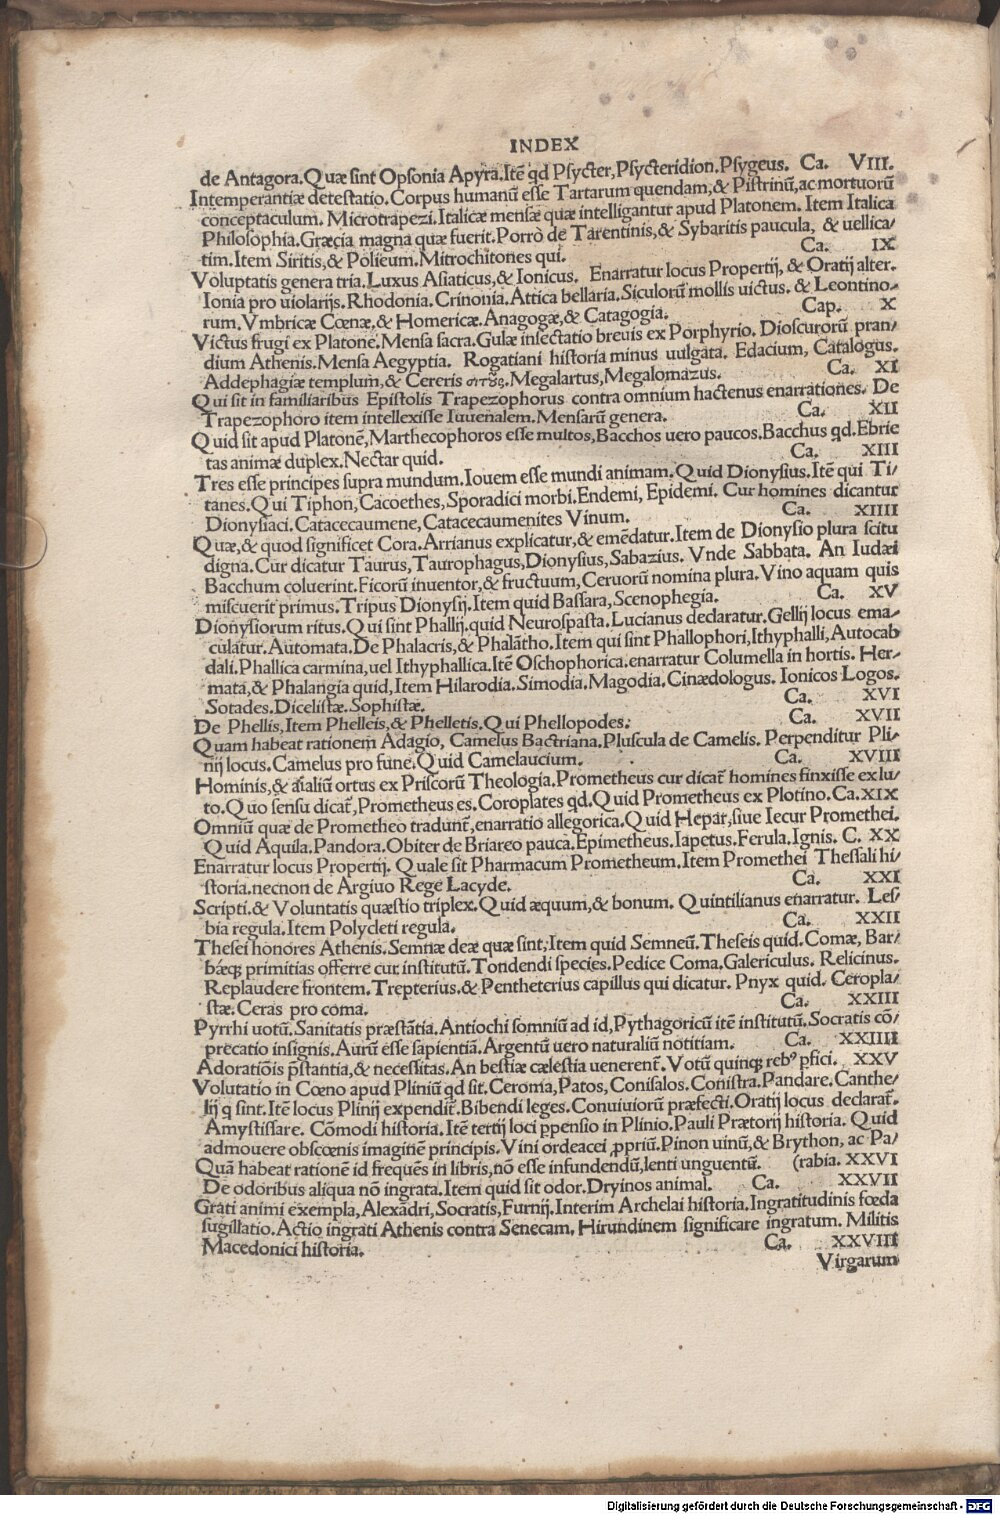 INDEX
de Antagora. Quæ sint Opsonia Apyra. Itẽ qd Psycter, Psycteridion. Psygeus. Ca. VIII.
Intemperantiæ detestatio. Corpus humanũ esse Tartarum quendam, & Pistrinũ, ac mortuorũ
conceptaculum. Microtrapezi. Italicæ mensæ quæ intelligantur apud Platonem. Item Italica
Philosophia. Græcia magna quæ fuerit. Porrò de Tarentinis, & Sybaritis paucula, & uellica/
tim. Item Siritis, & Polieum. Mitrochitones qui. Ca. IX
Voluptatis genera tria. Luxus Asiaticus, & Ionicus. Enarratur locus Propertij, & Oratij alter.
Ionia pro uiolarijs. Rhodonia. Crinonia. Attica bellaria. Siculorũ mollis uictus. & Leontino-
rum. Vmbricæ Cœnæ, & Homericæ. Anagogæ, & Catagogia. Cap. X
Victus frugi ex Platone. Mensa sacra. Gulæ insectatio breuis ex Porphyrio. Dioscurorũ pran/
dium Athenis. Mensa Aegyptia. Rogatiani historia minus uulgata. Edacium, Catalogus.
Addephagiæ templum, & Cereris σιτȣ̃ς. Megalartus, Megalomazus. Ca. XI
Qui sit in familiaribus Epistolis Trapezophorus contra omnium hactenus enarrationes. De
Trapezophoro item intellexisse Iuuenalem. Mensarũ genera. Ca. XII
Quid sit apud Platonẽ, Marthecophoros esse multos, Bacchos uero paucos. Bacchus qd. Ebrie
tas animæ duplex. Nectar quid. Ca. XIII
Tres esse principes supra mundum. Iouem esse mundi animam. Quid Dionysius. Itẽ qui Ti/
tanes. Qui Tiphon, Cacoethes, Sporadici morbi. Endemi, Epidemi. Cur homines dicantur
Dionysiaci. Catacecaumene, Catacecaumenites Vinum. Ca. XIIII
Quæ, & quod significet Cora. Arrianus explicatur, & emẽdatur. Item de Dionysio plura scitu
digna. Cur dicatur Taurus, Taurophagus, Dionysius, Sabazius. Vnde Sabbata. An Iudæi
Bacchum coluerint. Ficorũ inuentor, & fructuum, Ceruorũ nomina plura. Vino aquam quis
miscuerit primus. Tripus Dionysij. Item quid Bassara, Scenophegia. Ca. XV
Dionysiorum ritus. Qui sint Phallij. quid Neurospasta. Lucianus declaratur. Gellij locus ema-
culatur. Automata. De Phalacris, & Phalãtho. Item qui sint Phallophori, Ithyphalli, Autocab
dali. Phallica carmina, uel Ithyphallica. Itẽ Oschophorica. enarratur Columella in hortis. Her-
mata, & Phalangia quid, Item Hilarodia. Simodia. Magodia. Cinædologus. Ionicos Logos.
Sotades. Dicelistæ. Sophistæ. Ca. XVI
De Phellis, Item Phelleis, & Phelletis. Qui Phellopodes. Ca. XVII
Quam habeat rationem Adagio, Camelus Bactriana. Pluscula de Camelis. Perpenditur Pli-
nij locus. Camelus pro fune. Quid Camelaucium. Ca. XVIII
Hominis, & aĩaliũ ortus ex Priscorũ Theologia. Prometheus cur dicat̃ homines finxisse ex lu/
to. Quo sensu dicat̃, Prometheus es. Coroplates qd. Quid Prometheus ex Plotino. Ca. XIX
Omniũ quæ de Prometheo tradunt̃, enarratio allegorica. Quid Hepar, siue Iecur Promethei.
Quid Aquila. Pandora. Obiter de Briareo pauca. Epimetheus. Iapetus. Ferula. Ignis. C. XX
Enarratur locus Propertij. Quale sit Pharmacum Prometheum. Item Promethei Thessali hi/
storia. necnon de Argiuo Rege Lacyde. Ca. XXI
Scripti. & Voluntatis quæstio triplex. Quid æquum, & bonum. Quintilianus enarratur. Les/
bia regula. Item Polycleti regula. Ca. XXII
Thesei honores Athenis. Semnæ deæ quæ sint, Item quid Semneũ. Theseis quid. Comæ, Bar/
báeqꝫ primitias offerre cur institutũ. Tondendi species. Pedice Coma. Galericulus. Relicinus.
Replaudere frontem. Trepterius. & Pentheterius capillus qui dicatur. Pnyx quid. Ceropla/
stæ. Ceras pro coma. Ca. XXIII
Pyrrhi uotũ. Sanitatis præstãtia. Antiochi somniũ ad id, Pythagoricũ itẽ institutũ. Socratis cõ/
precatio insignis. Aurũ esse sapientiã. Argentũ uero naturaliũ notitiam. Ca. XXIIII
Adoratiõis p̃stantia, & necessitas. An bestiæ cælestia uenerent̃. Votũ quinqꝫ rebꝰ ꝑfici. XXV
Volutatio in Cœno apud Pliniũ qd sit. Ceroma, Patos, Conisalos. Conistra. Pandare. Canthe/
lij q̃ sint. Itẽ locus Plinij expendit̃. Bibendi leges. Conuiuiorũ præfecti. Oratij locus declarat̃.
Amystissare. Cõmodi historia. Itẽ tertij loci ꝓpensio in Plinio. Pauli Prætorij historia. Quid
admouere obscœnis imaginẽ principis. Vini ordeacei ꝓpriũ. Pinon uinũ, & Brython, ac Pa/
Quã habeat rationẽ id frequẽs in libris, nõ esse infundendũ, lenti unguentũ. (rabia. XXVI
De odoribus aliqua nõ ingrata. Item quid sit odor. Dryinos animal. Ca. XXVII
Grati animi exempla, Alexãdri, Socratis, Furnij. Interim Archelai historia. Ingratitudinis fœda
sugillatio. Actio ingrati Athenis contra Senecam. Hirundinem significare ingratum. Militis
Macedonici historia. Ca. XXVIII
Virgarum
Digitalisierung gefördert durch die Deutsche Forschungsgemeinschaft - DFG